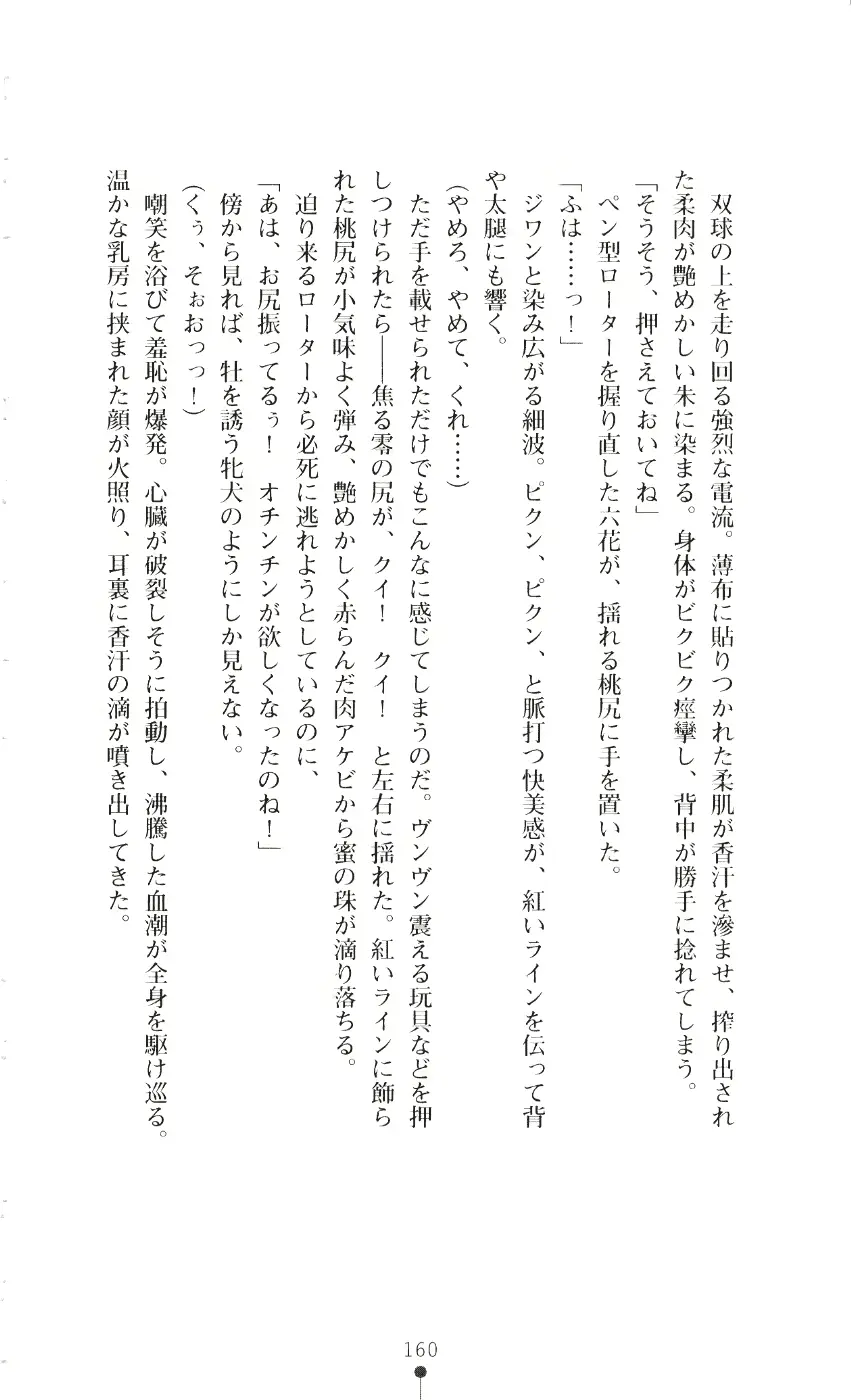 双球の上を走り回る強烈な電流。薄布に貼りつかれた柔肌が香汗を滲ませ、搾り出され
た柔肉が艶めかしい朱に染まる。身体がビクビク痙攣し、背中が勝手に捻れてしまう。
「そうそう、押さえておいてね」
ペン型ローターを握り直した六花が、揺れる桃尻に手を置いた。
「ふは……っ！」
ジワンと染み広がる細波。ピクン、ピクン、と脈打つ快美感が、紅いラインを伝って背
や太腿にも響く。
(やめろ、やめて、くれ……)
ただ手を載せられただけでもこんなに感じてしまうのだ。ヴンヴン震える玩具などを押
しつけられたら――焦る零の尻が、クイ！　クイ！　と左右に揺れた。紅いラインに飾ら
れた桃尻が小気味よく弾み、艶めかしく赤らんだ肉アケビから蜜の珠が滴り落ちる。
迫り来るローターから必死に逃れようとしているのに、
「あは、お尻振ってるぅ！　オチンチンが欲しくなったのね！」
傍から見れば、牡を誘う牝犬のようにしか見えない。
(くぅ、そぉおっっ！)
嘲笑を浴びて羞恥が爆発。心臓が破裂しそうに拍動し、沸騰した血潮が全身を駆け巡る。
温かな乳房に挟まれた顔が火照り、耳裏に香汗の滴が噴き出してきた。
160